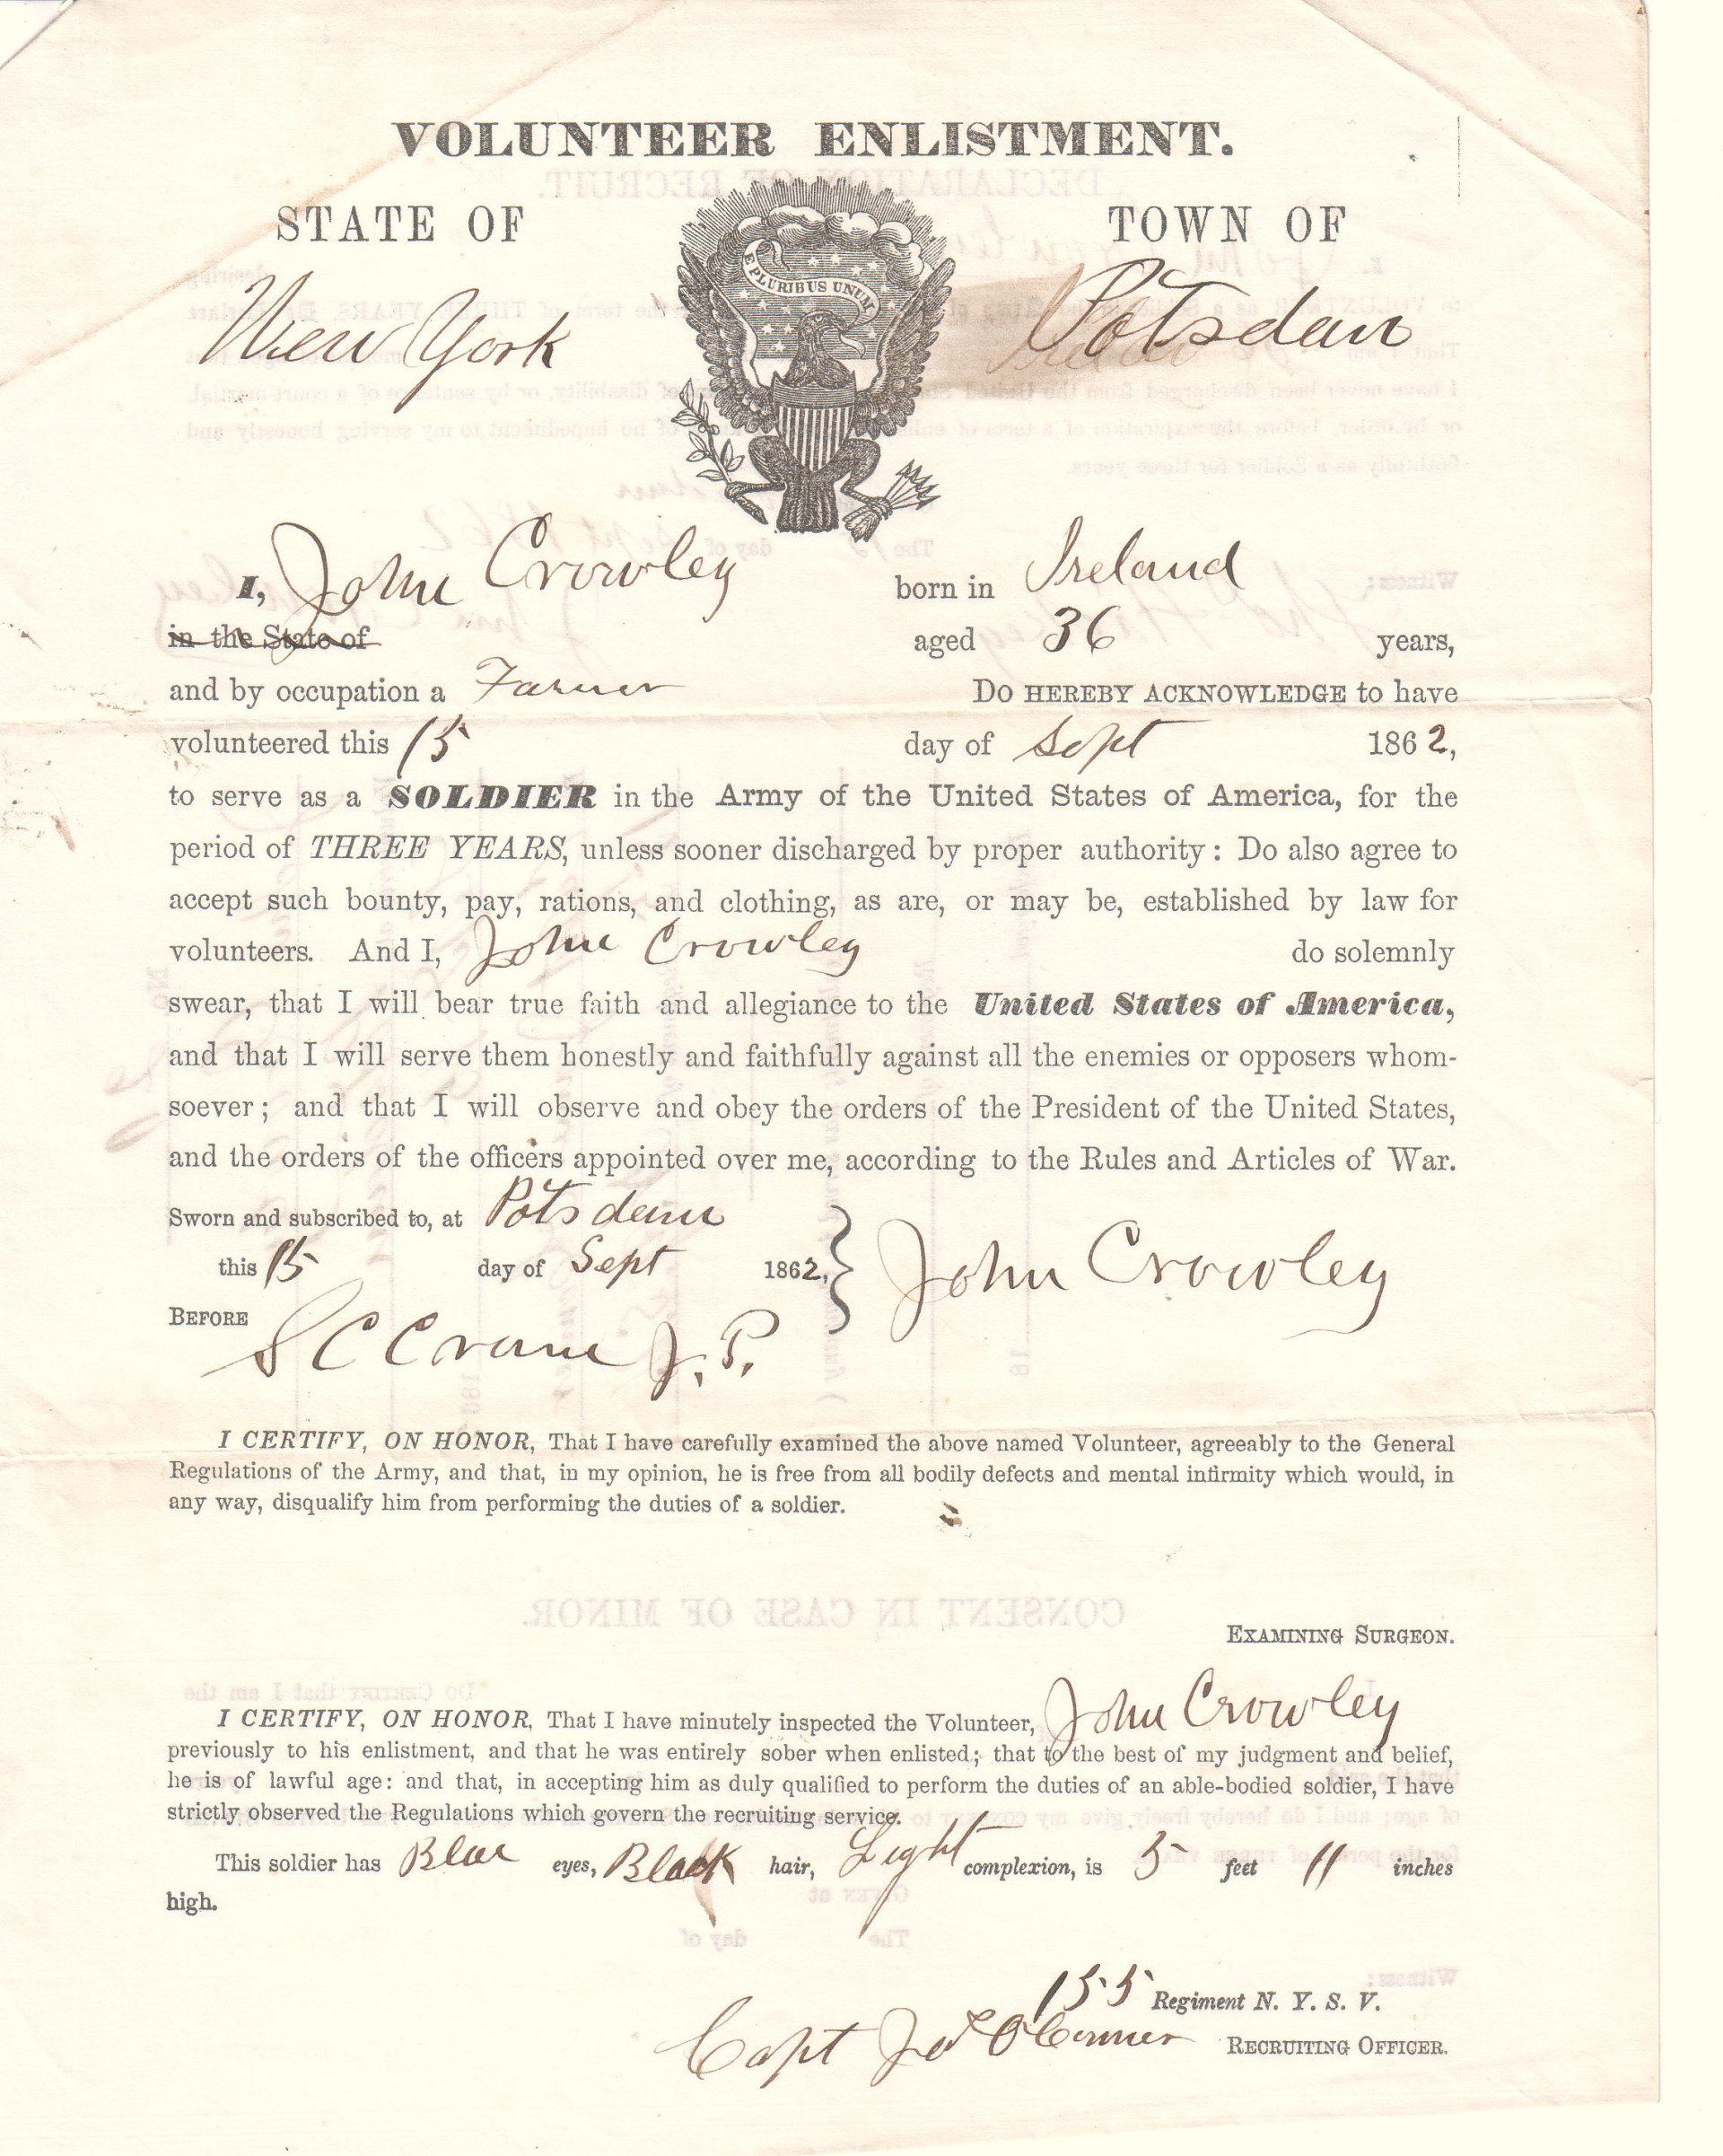 VOLUNTEER ENLISTMENT.
STATE OF TOWN OF
E PLURIBUS UNUM
New York Potsdam
I, John Crowley born in Ireland
in the State of aged 36 years,
and by occupation a Farmer Do HEREBY ACKNOWLEDGE to have
volunteered this 15 day of Sept 1862,
to serve as a SOLDIER in the Army of the United States of America, for the
period of THREE YEARS, unless sooner discharged by proper authority: Do also agree to
accept such bounty, pay, rations, and clothing, as are, or may be, established by law for
volunteers. And I, John Crowley do solemnly
swear, that I will bear true faith and allegiance to the United States of America,
and that I will serve them honestly and faithfully against all the enemies or opposers whom-
soever; and that I will observe and obey the orders of the President of the United States,
and the orders of the officers appointed over me, according to the Rules and Articles of War.
Sworn and subscribed to, at Potsdam
this 15 day of Sept 1862, John Crowley
BEFORE S C Crane J. P.
I CERTIFY, ON HONOR, That I have carefully examined the above named Volunteer, agreeably to the General
Regulations of the Army, and that, in my opinion, he is free from all bodily defects and mental infirmity which would, in
any way, disqualify him from performing the duties of a soldier.
EXAMINING SURGEON.
I CERTIFY, ON HONOR, That I have minutely inspected the Volunteer, John Crowley
previously to his enlistment, and that he was entirely sober when enlisted; that to the best of my judgment and belief,
he is of lawful age: and that, in accepting him as duly qualified to perform the duties of an able-bodied soldier, I have
strictly observed the Regulations which govern the recruiting service.
This soldier has Blue eyes, Black hair, Light complexion, is 5 feet 11 inches
high.
155 Regiment N. Y. S. V.
Capt O'Conner RECRUITING OFFICER.